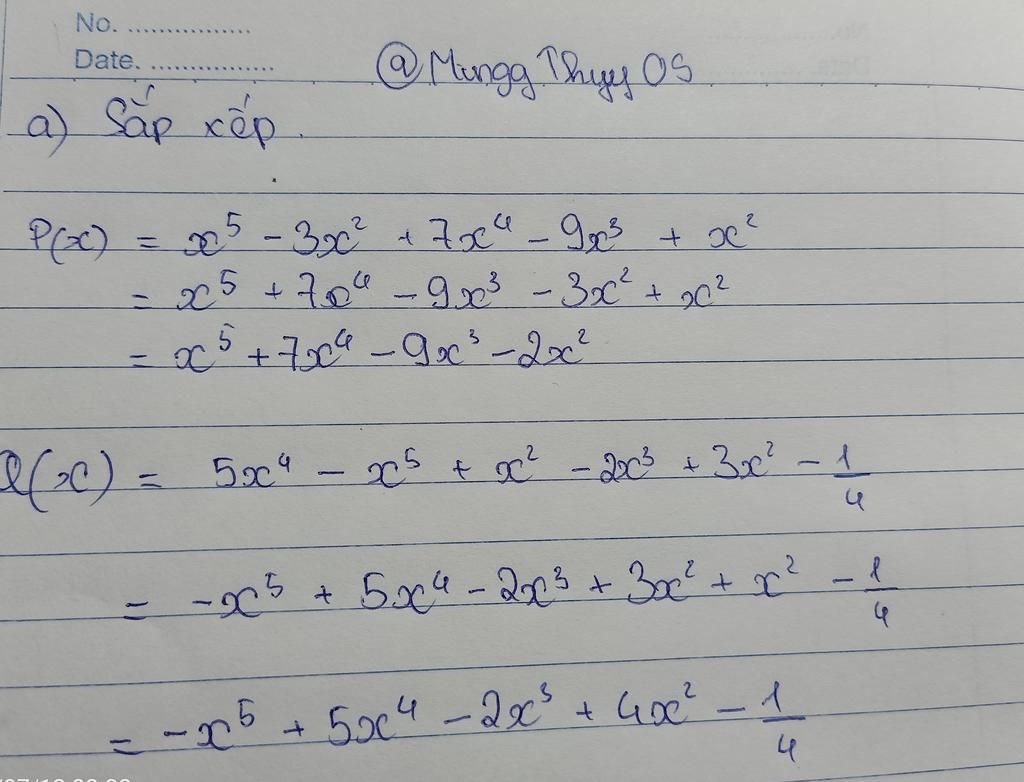 No. ................
Date. ................
@MunggThuyOS
a) Sắp xếp.
P(x) = x⁵ - 3x² + 7x⁴ - 9x³ + x²
= x⁵ + 7x⁴ - 9x³ - 3x² + x²
= x⁵ + 7x⁴ - 9x³ - 2x²
Q(x) = 5x⁴ - x⁵ + x² - 2x³ + 3x² - 1/4
= -x⁵ + 5x⁴ - 2x³ + 3x² + x² - 1/4
= -x⁵ + 5x⁴ - 2x³ + 4x² - 1/4